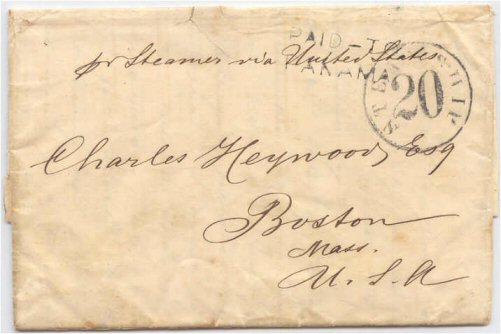 PAID TO
pr Steamer via United States
PANAMA
STEAMSHIP
20
Charles Heywood, Esq
Boston
Mass.
U.S.A